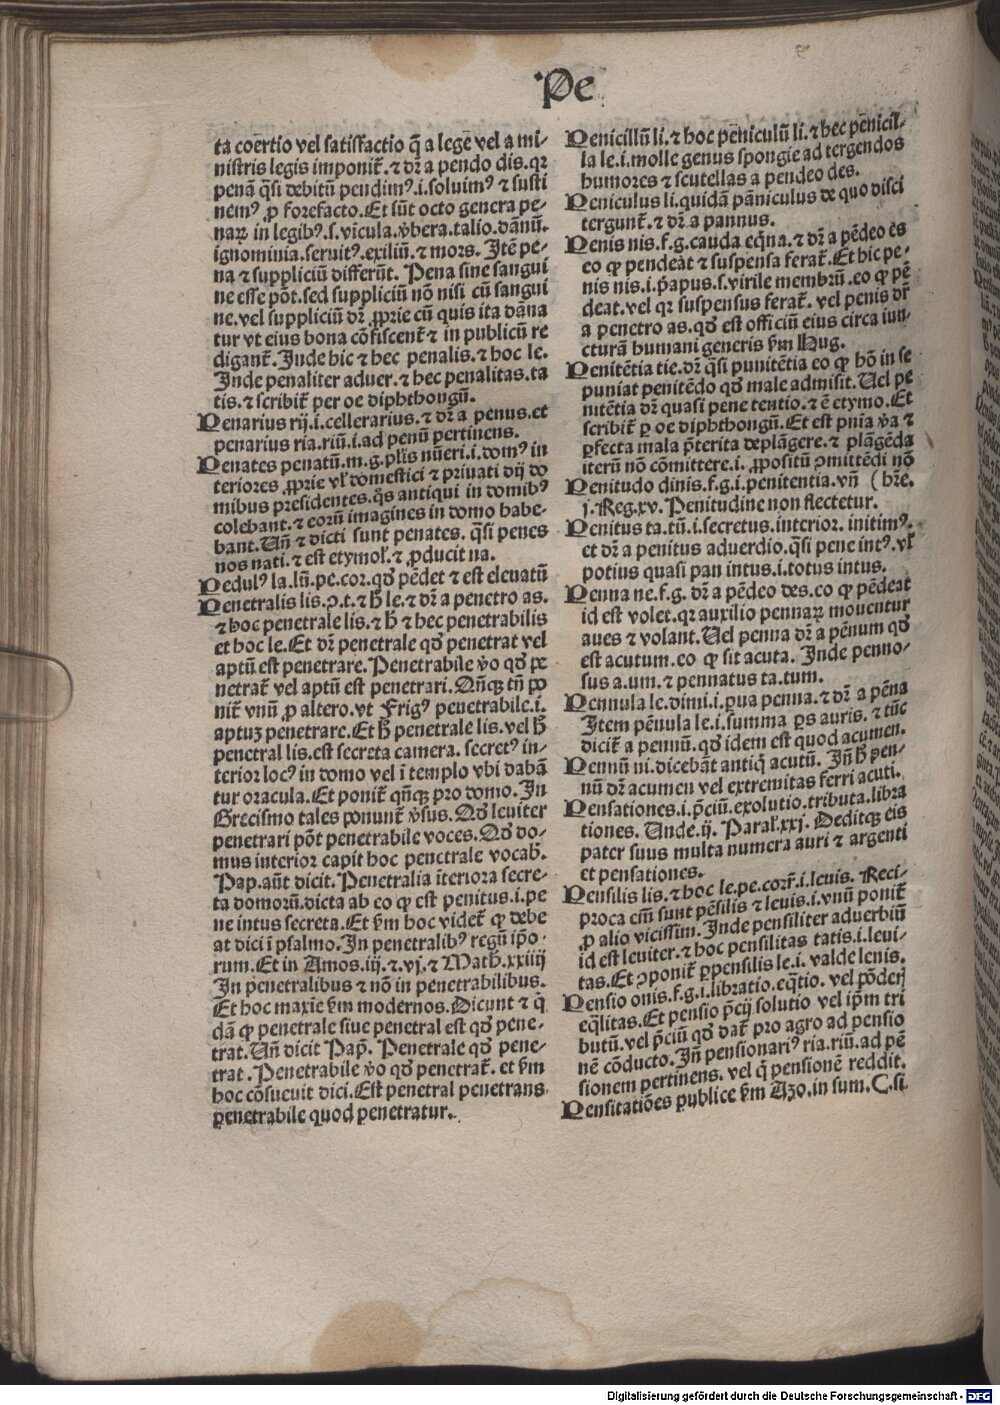 Pe
ta coẽrtio vel satisfactio q̃ a lege vel a mi-
nistris legis imponit̃. ⁊ dr̃ a pendo dis. qr
penã q̃si debitũ pendimꝰ .i. soluimꝰ ⁊ susti
nemꝰ ꝓ forefacto. Et sũt octo genera pe-
naꝝ in legibꝰ .s. vĩcula. v̾bera. talio. dãnũ.
ignominia. seruitꝰ. exiliũ. ⁊ mors. Itẽ pe-
na ⁊ suppliciũ differũt. Pena sine sangui
ne esse põt. sed suppliciũ nõ nisi cũ sangui
ne. vel suppliciũ dr̃ ꝓprie cũ quis ita dãna
tur vt eius bona cõfiscent̃ ⁊ in publicũ re
digant̃. Inde hic ⁊ hec penalis. ⁊ hoc le.
Inde penaliter aduer. ⁊ hec penalitas. ta
tis. ⁊ scribit̃ per oe diphthongũ.
Penarius rij .i. cellerarius. ⁊ dr̃ a penus. et
penarius ria. riũ .i. ad penũ pertinens.
Penates penatũ. m. g. pl̃is nũeri .i. domꝰ in
teriores ꝓprie vl̃ domestici ⁊ priuati dij do
mibus presidentes. q̃s antiqui in domibꝰ
colebant. ⁊ eorũ imagines in domo habe-
bant. Vñ ⁊ dicti sunt penates. q̃si penes
nos nati. ⁊ est etymol̃. ⁊ ꝓducit na.
Pedulꝰ la. lũ. pe. cor. qđ pẽdet ⁊ est eleuatũ
Penetralis lis. ꝯ. t. ⁊ h̃ le. ⁊ dr̃ a penetro as.
⁊ hoc penetrale lis. ⁊ h̃ ⁊ hec penetrabilis
et hoc le. Et dr̃ penetrale qđ penetrat vel
aptũ est penetrare. Penetrabile v̾o qđ pe
netrat̃ vel aptũ est penetrari. Añqꝫ tñ po
nit̃ vnũ ꝓ altero. vt Frigꝰ penetrabile .i.
aptuꝫ penetrare. Et h̃ penetrale lis. vel h̃
penetral lis. est secreta camera. secretꝰ in-
terior locꝰ in domo vel ĩ templo vbi dabã
tur oracula. Et ponit̃ qñqꝫ pro domo. In
Grecismo tales ponunt̃ v̾sus. Qđ leuiter
penetrari põt penetrabile voces. Qđ do-
mus interior capit hoc penetrale vocab̃.
Pap. aũt dicit. Penetralia ĩteriora secre-
ta domorũ. dicta ab eo ꝙ est penitus .i. pe
ne intus secreta. Et ẜm hoc videt̃ ꝙ debe
at dici ĩ psalmo. In penetralibꝰ regũ ip̃o-
rum. Et in Amos. iij. ⁊ .vj. ⁊ Math̃. xxiiij
In penetralibus ⁊ nõ in penetrabilibus.
Et hoc maxĩe ẜm modernos. Dicunt ⁊ q̃
dã ꝙ penetrale siue penetral est qđ pene-
trat. Vñ dicit Pap̃. Penetrale qđ pene-
trat. Penetrabile v̾o qđ penetrat̃. et ẜm
hoc cõsueuit dici. Est penetral penetrans
penetrabile quod penetratur.
Penicillũ li. ⁊ hoc pẽniculũ li. ⁊ hec pẽnicil-
la le .i. molle genus spongie ad tergendos
humores ⁊ scutellas a pendeo des.
Peniculus li. quidã pãniculus de quo disci
tergunt̃. ⁊ dr̃ a pannus.
Penis nis. f. g. cauda eq̃na. ⁊ dr̃ a pẽdeo es
eo ꝙ pendeat ⁊ suspensa ferat̃. Et hic pe-
nis nis .i. p̃apus .s. virile membrũ. eo ꝙ pẽ
deat. vel qr suspensus ferat̃. vel penis dr̃
a penetro as. qđ est officiũ eius circa iun-
cturã humani generis ẜm Hug.
Penitẽtia tie. dr̃ q̃si punitẽtia eo ꝙ hõ in se
puniat penitẽdo qđ male admisit. Vel pe
nitẽtia dr̃ quasi pene tentio. ⁊ ẽ etymo. Et
scribit̃ ꝑ oe diphthongũ. Et est pñia v̾a ⁊
ꝑfecta mala p̃terita deplãgere. ⁊ plãgẽda
iterũ nõ cõmittere .i. ꝓpositũ ꝯmittẽdi nõ
Penitudo dinis. f. g. i. penitentia. vñ ( hr̃e.
j. Reg. xv. Penitudine non flectetur.
Penitus ta. tũ. i. secretus. interior. initimꝰ.
et dr̃ a penitus aduerdio. q̃si pene intꝰ. vl̃
potius quasi pan intus .i. totus intus.
Penna ne. f. g. dr̃ a pẽdeo des. eo ꝙ pẽdeat
id est volet. qr auxilio pennaꝝ mouentur
aues ⁊ volant. Vel penna dr̃ a pẽnum qđ
est acutum. eo ꝙ sit acuta. Inde penno-
sus a. um. ⁊ pennatus ta. tum.
Pennula le. dimi .i. ꝑua penna. ⁊ dr̃ a pẽna
Item pẽnula le .i. summa ꝑs auris. ⁊ tũc
dicit̃ a pennũ. qđ idem est quod acumen.
Pennũ ni. dicebãt antiq̃ acutũ. Iñ h̃ pen-
nũ dr̃ acumen vel extremitas ferri acuti.
Pensationes .i. p̃ciũ. exolutio. tributa. libra
tiones. Unde. ij. Paral̃. xxj. Deditqꝫ eis
pater suus multa numera auri ⁊ argenti
et pensationes.
Pensilis lis. ⁊ hoc le. pe. corr̃. i. leuis. Reci-
proca eñi sunt pẽsilis ⁊ leuis .i. vnũ ponit̃
ꝓ alio vicissim. Inde pensiliter aduerbiũ
id est leuiter. ⁊ hoc pensilitas tatis .i. leui-
tas. Et ꝯponit̃ ꝑpensilis le .i. valde lenis.
Pensio onis. f. g. i. libratio. eq̃tio. vel põderj
eq̃litas. Et pensio p̃cij solutio vel ip̃m tri
butũ. vel p̃ciũ qđ dat̃ pro agro ad pensio
nẽ cõducto. Iñ pensionariꝰ ria. riũ. ad pẽ
sionem pertinens. vel q̃ pensionẽ reddit.
Pensitatiões publice ẜm Azo. in sum. C. si.
Digitalisierung gefördert durch die Deutsche Forschungsgemeinschaft - DFG